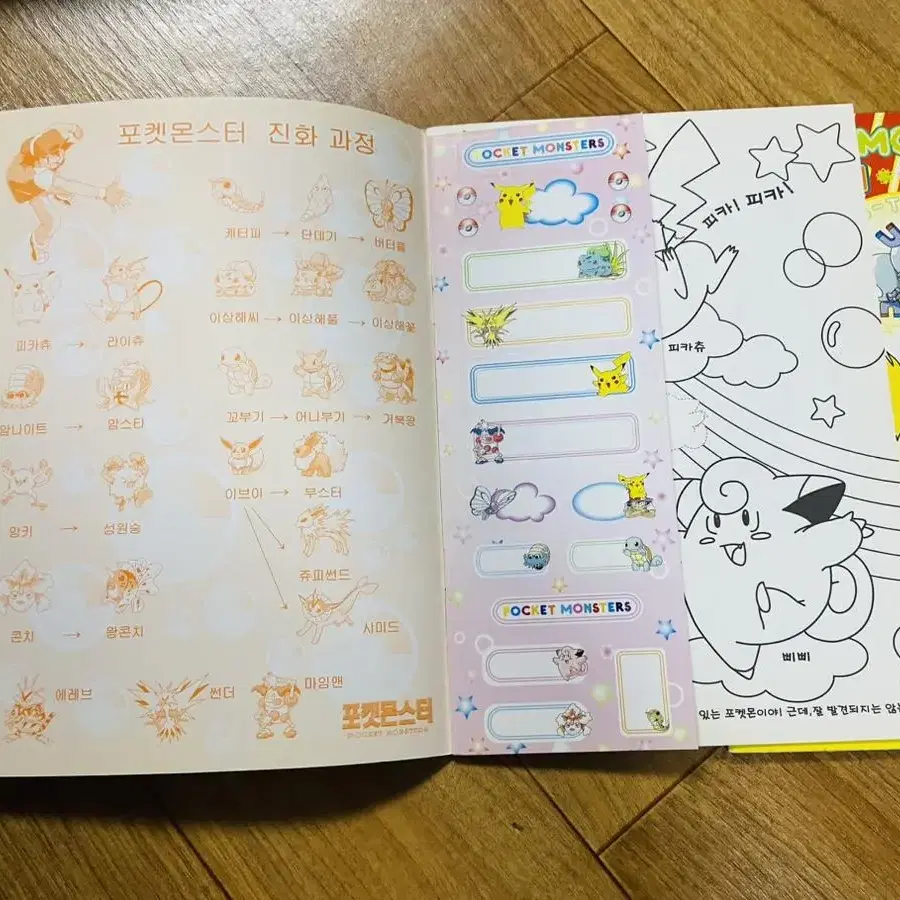 포켓몬스터 진화 과정
캐터피 → 단데기 → 버터플
피카츄 → 라이츄
이상해씨 → 이상해풀 → 이상해꽃
암나이트 → 암스타
꼬부기 → 어니부기 → 거북왕
망키 → 성원숭
이브이 → 부스터
쥬피썬더
콘치 → 왕콘치
샤미드
에레브
썬더
마임맨
포켓몬스터
POCKET MONSTERS
POCKET MONSTERS
POCKET MONSTERS
피카! 피카!
피카츄
삐삐
있는 포켓몬이야! 근데, 잘 발견되지는 않